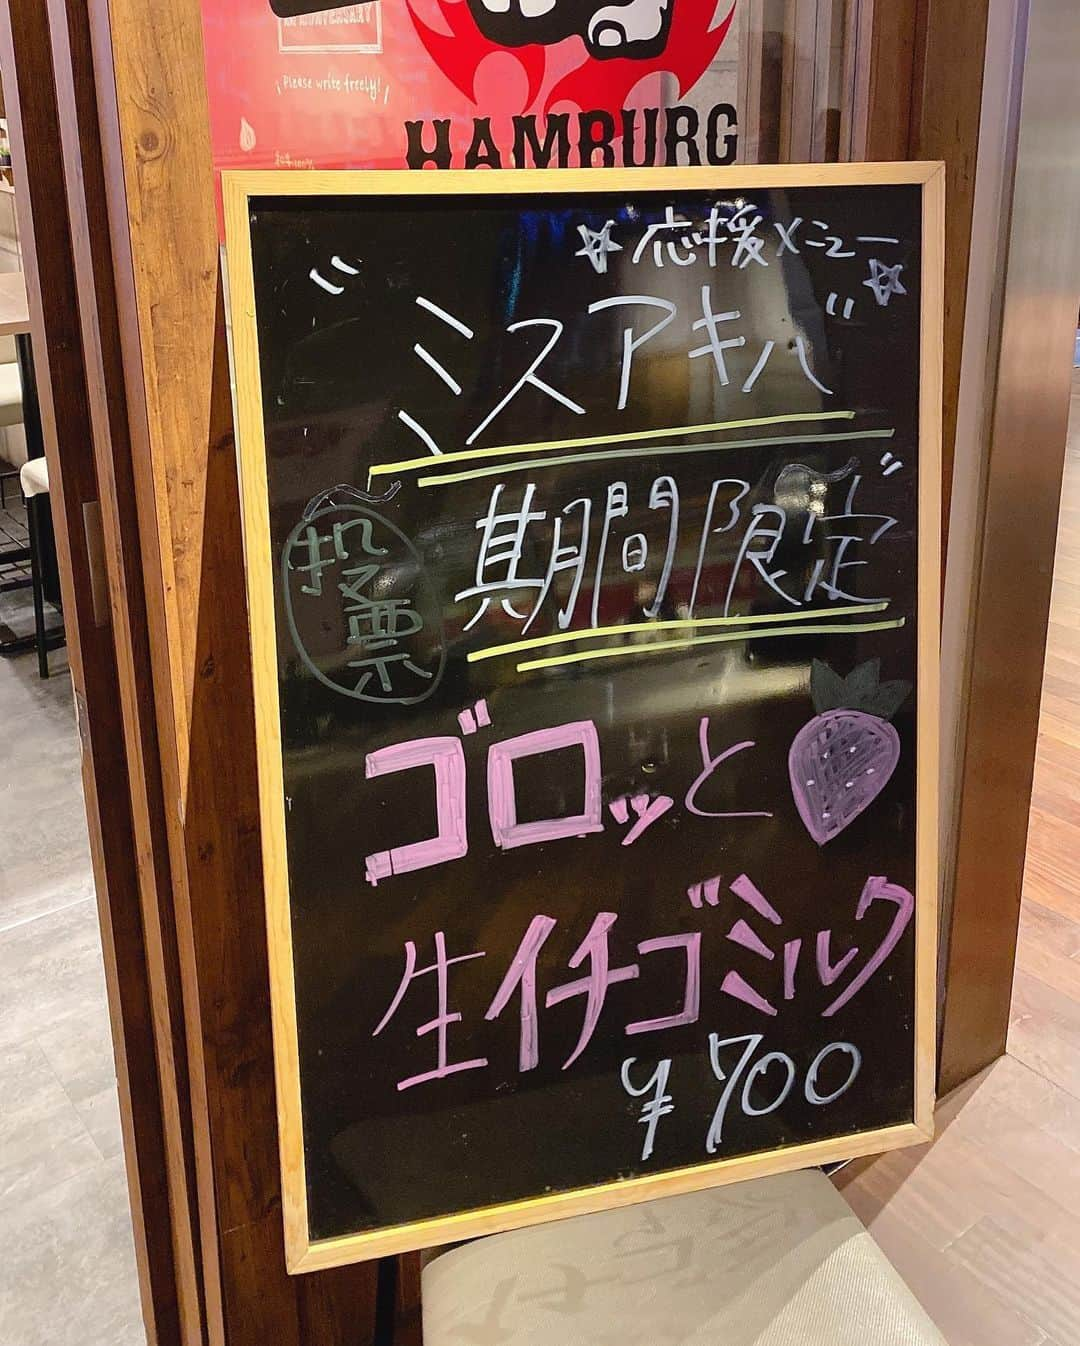 ANNIVERSARY
Please write freely!
和牛100%
HAMBURG
☆応援メニュー☆
"ミスアキバ"
投票
期間限定
ゴロッと
生イチゴミルク
¥700